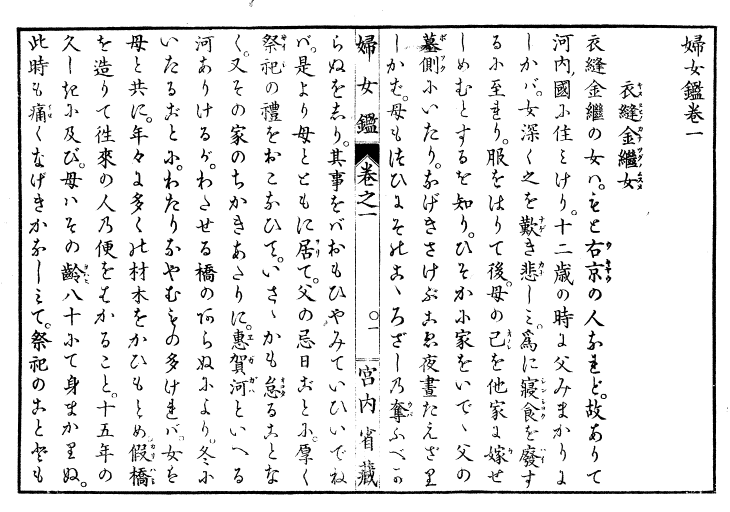 婦女鑑巻一
衣縫金繼女
衣縫金繼の女ハ。もと右京の人なれど。故ありて
河内國に住ミけり。十二歳の時に父みまかりに
しかバ。女深く之を歎き悲しミ。爲に寢食を廢す
るに至れり。服をはりて後。母の己を他家に嫁せ
しめむとするを知り。ひそかに家をいでゝ父の
墓側にいたり。なげきさけぶこゑ夜晝たえざり
しかば。母もつひにそのこゝろざしの奪ふべか
婦女鑑 巻之一 ○一 宮内省藏
らぬをしり。其事をバおもひやみていひいでね
バ。是より母とともに居て。父の忌日ごとに。厚く
祭祀の禮をおこなひて。いさゝかも怠ることな
く。又その家のちかきあたりに。惠賀河といへる
河ありけるが。わたせる橋のあらぬにより。冬に
いたるごとに。わたりなやむもの多けれバ。女を
母と共に。年々に多くの材木をかひもとめ假橋
を造りて徃來の人の便をはかること。十五年の
久しきに及び。母ハその齡八十にて身まかりぬ。
此時も痛くなげきかなしミて。祭祀のことども